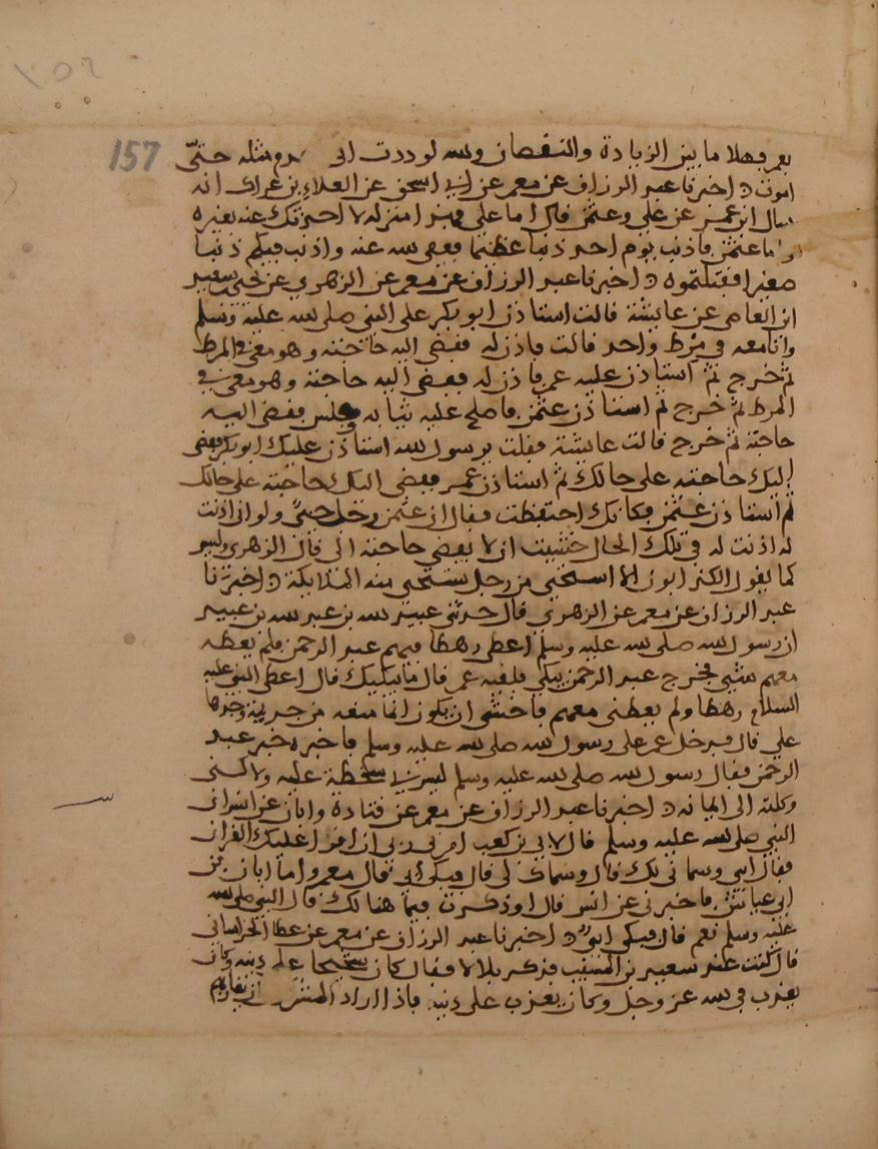 ١٥٦
157
بعد فهلا ما بين الزيادة والنقصان ولله لوددت اني مثله حتى
اموت ه اخبرنا عبد الرزاق عن معمر عن ابي اسحق عن العلاء بن عرار انه
سال ابن عمر عن علي وعثمن قال اما علي فهذا منزله لا احدثك عنه بغيره
واما عثمن فاذنب يوم احد ذنبا عظيما فعفى لله عنه واذنب فيكم ذنبا
صغيرا فقتلتموه ه اخبرنا عبد الرزاق عن معمر عن الزهري عن يحيى بن سعيد
ابن العاصي عن عايشة قالت استاذن ابو بكر على النبي صلى لله عليه وسلم
وانا معه في مرط واحد قالت فاذن له فقضى اليه حاجته وهو معي في المرط
ثم خرج ثم استاذن عليه عمر فاذن له فقضى اليه حاجته وهو معي في
المرط ثم خرج ثم استاذن عثمن فاصلح عليه ثيابه وجلس فقضى اليه
حاجته ثم خرج قالت عايشة فقلت يرسول لله استاذن عليك ابو بكر فقضى
اليك حاجته على حالك ثم استاذن عمر فقضى اليك حاجته على حالك
ثم استاذن عثمن فكانك احتفظت فقال ان عثمن رجل حيي ولو اني اذنت
له اذنت له في تلك الحال خشيت ان لا يقضي حاجته الي قال الزهري وليس
كما يقول الكذابون الا استحيي من رجل تستحي منه الملايكة ه اخبرنا
عبد الرزاق عن معمر عن الزهري قال حدثني عبيد لله بن عبد لله بن عتبة
ان رسول لله صلى لله عليه وسلم اعطى رهطا فيهم عبد الرحمن فلم يعطه
معهم شيي فخرج عبد الرحمن يبكي فلقيه عمر فقال ما يبكيك قال اعطى النبي عليه
السلام رهطا ولم يعطني معهم فاخشى ان يكون انما منعه من جريته وجدها
علي قال فدخل عمر على رسول لله صلى لله عليه وسلم فاخبره خبر عبد
الرحمن فقال رسول لله صلى لله عليه وسلم ليس بي سخطة عليه ولاكني
وكلته الى ايمانه ه اخبرنا عبد الرزاق عن معمر عن قتادة وابان عن انس ان
النبي صلى لله عليه وسلم قال لابي بن كعب امرني ربي ان اقرا عليك القران
فقال ابي وسماني لك قال وسماك لي قال فبكى ابي قال معمر واما ابان بن
ابي عياش فاخبرني عن انس قال اوذكرت فيما هنالك قال النبي صلى لله
عليه وسلم نعم قال فبكى ابي ه اخبرنا عبد الرزاق عن معمر عن عطا الخراساني
قال كنت عند سعيد بن المسيب فذكر بلالا فقال كان شحيحا على دينه وكان
يعذب في لله عز وجل وكان يعذب على دينه فاذا اراد المشركون ان يقاربهم